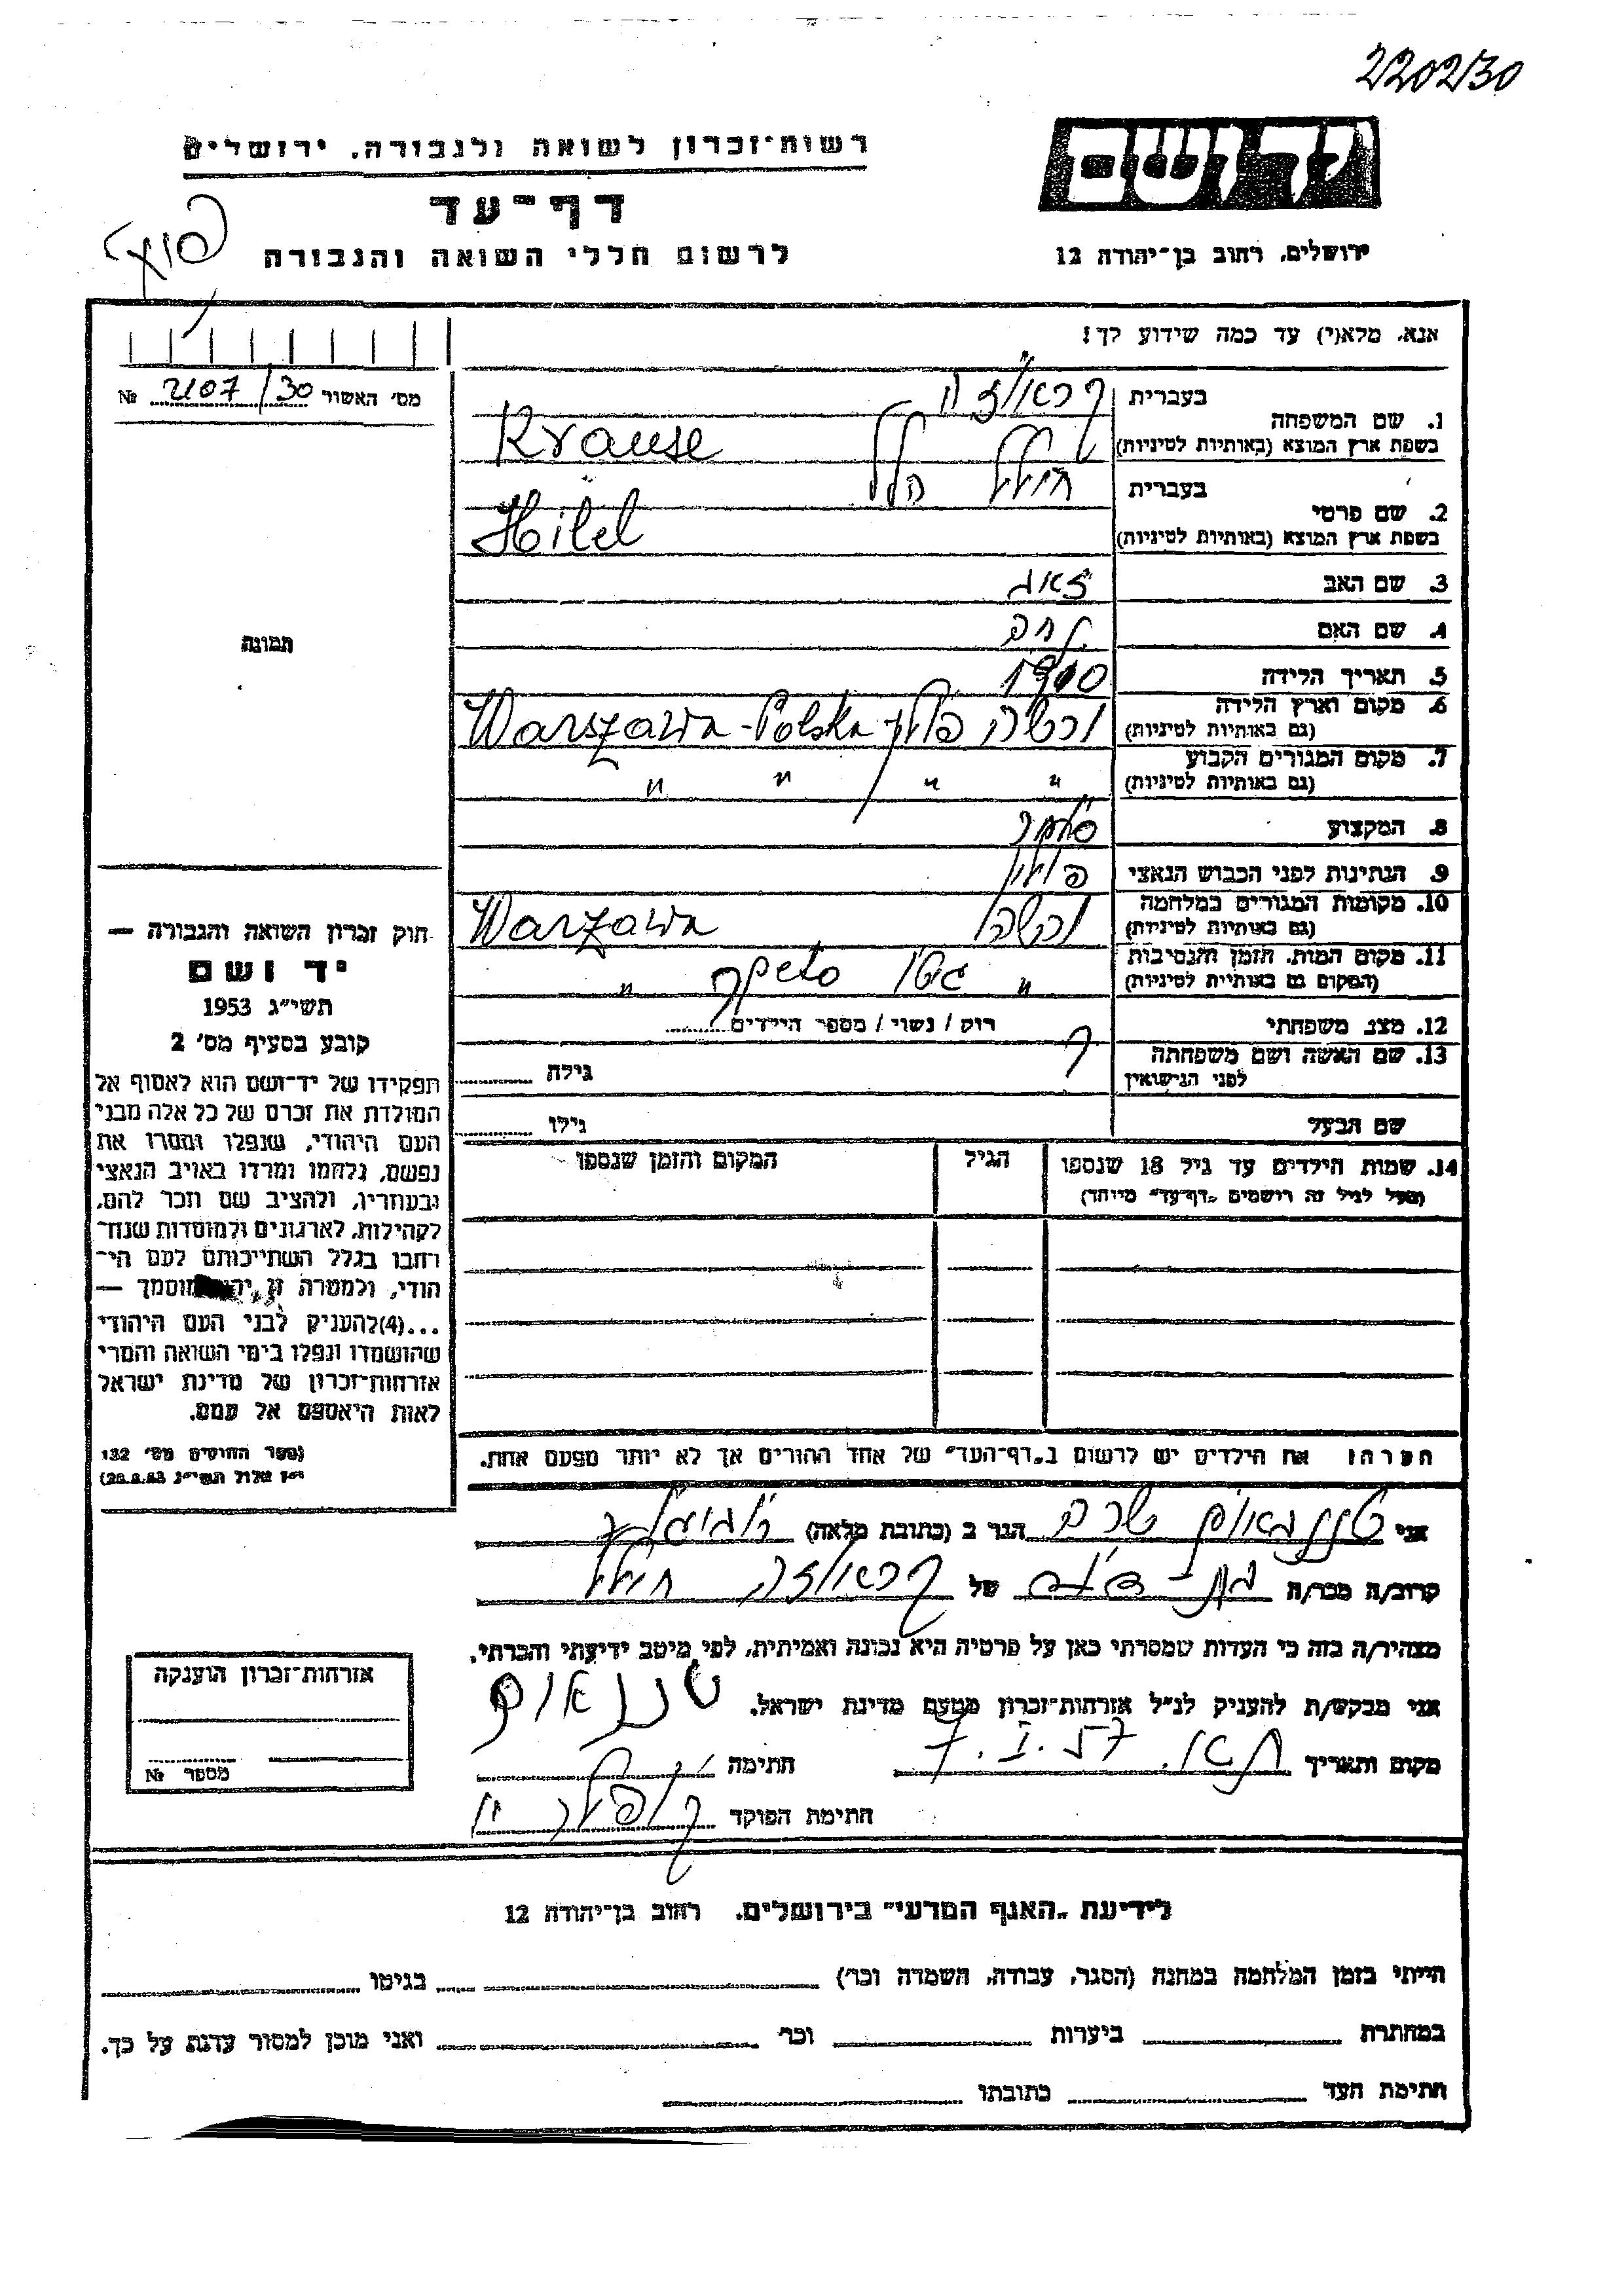 220230
רשות־זכרון לשואה ולגבורה, ירושלים
יד ושם
דף־עד
לרשום חללי השואה והגבורה
ירושלים, רחוב בן־יהודה 12
אנא, מלא(י) עד כמה שידוע לך!
מס' האשור 2107/30 №
בעברית
1. שם המשפחה
בשפת ארץ המוצא (באותיות לטיניות) Krause
בעברית הלל
2. שם פרטי
בשפת ארץ המוצא (באותיות לטיניות) Hilel
3. שם האב
4. שם האם
5. תאריך הלידה 1910
6. מקום וארץ הלידה ורשה פולין Warszawa-Polska
(גם באותיות לטיניות)
7. מקום המגורים הקבוע " " " "
(גם באותיות לטיניות)
8. המקצוע סוחר
9. הנתינות לפני הכבוש הנאצי פולין
10. מקומות המגורים במלחמה ורשה Warzawa
(גם באותיות לטיניות)
11. מקום המות, הזמן והנסיבות " גיטו "
(המקום גם באותיות לטיניות)
12. מצב משפחתי רוק / נשוי / מספר הילדים
13. שם האשה ושם משפחתה
לפני הנישואין גילה
שם הבעל גילו
14. שמות הילדים עד גיל 18 שנספו הגיל המקום והזמן שנספו
(מעל לגיל זה רושמים "דף־עד" מיוחד)
תמונה
חוק זכרון השואה והגבורה —
יד ושם
תשי"ג 1953
קובע בסעיף מס' 2
תפקידו של יד־ושם הוא לאסוף אל
המולדת את זכרם של כל אלה מבני
העם היהודי, שנפלו ומסרו את
נפשם, נלחמו ומרדו באויב הנאצי
ובעוזריו, ולהציב שם וזכר להם,
לקהילות, לארגונים ולמוסדות שנח־
רבו בגלל השתייכותם לעם הי־
הודי, ולמטרה זו יהא מוסמך —
...(4)להעניק לבני העם היהודי
שהושמדו ונפלו בימי השואה והמרי
אזרחות־זכרון של מדינת ישראל
לאות היאספם אל עמם.
(ספר החוקים מס' 132
י"ז אלול תשי"ג 28.8.53)
הערה: את הילדים יש לרשום ב"דף־העד" של אחד ההורים אך לא יותר מפעם אחת.
אני הגר ב (כתובת מלאה)
קרוב/ה מכר/ה בת־דודה של
מצהיר/ה בזה כי העדות שמסרתי כאן על פרטיה היא נכונה ואמיתית, לפי מיטב ידיעתי והכרתי.
אני מבקש/ת להעניק לנ"ל אזרחות־זכרון מטעם מדינת ישראל.
מקום ותאריך ת"א. 7.I.57 חתימה
חתימת הפוקד
אזרחות־זכרון הוענקה
מספר №
לידיעת "האגף המדעי" בירושלים, רחוב בן־יהודה 12
הייתי בזמן המלחמה במחנה (הסגר, עבודה, השמדה וכו') בגיטו
במחתרת ביערות וכו' ואני מוכן למסור עדות על כך.
חתימת העד כתובתו